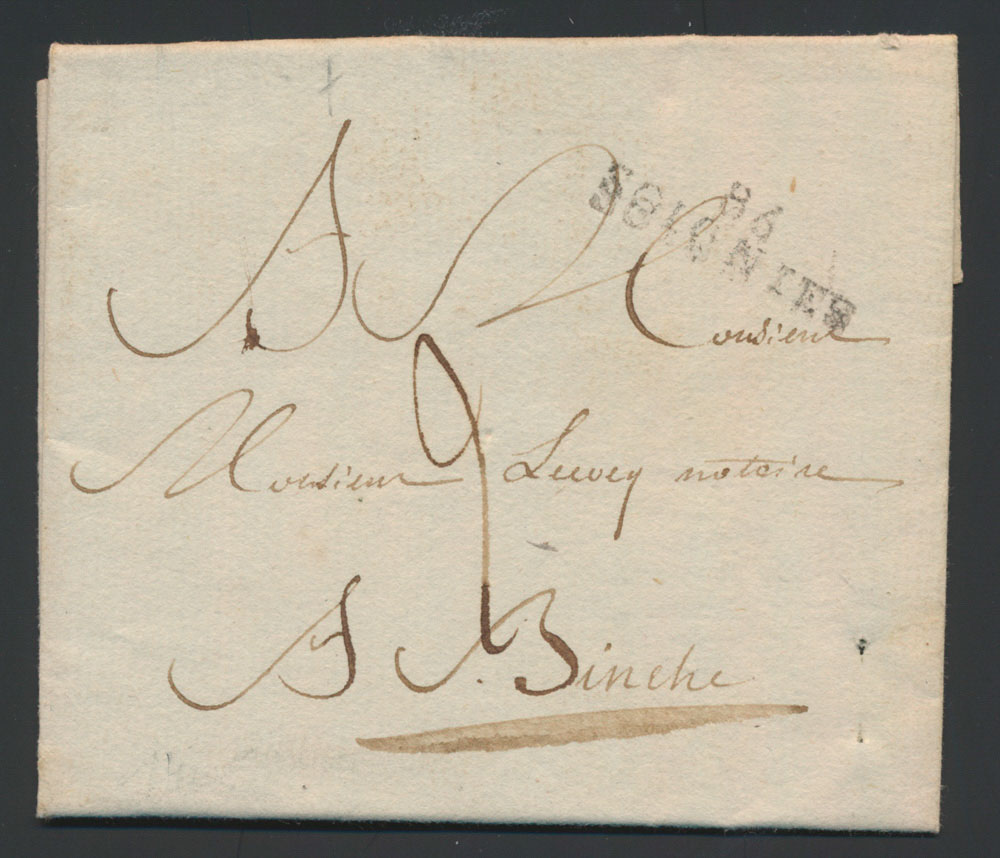 86
SOIGNIES
A Monsieur
Monsieur Lecocq notaire
A Binche